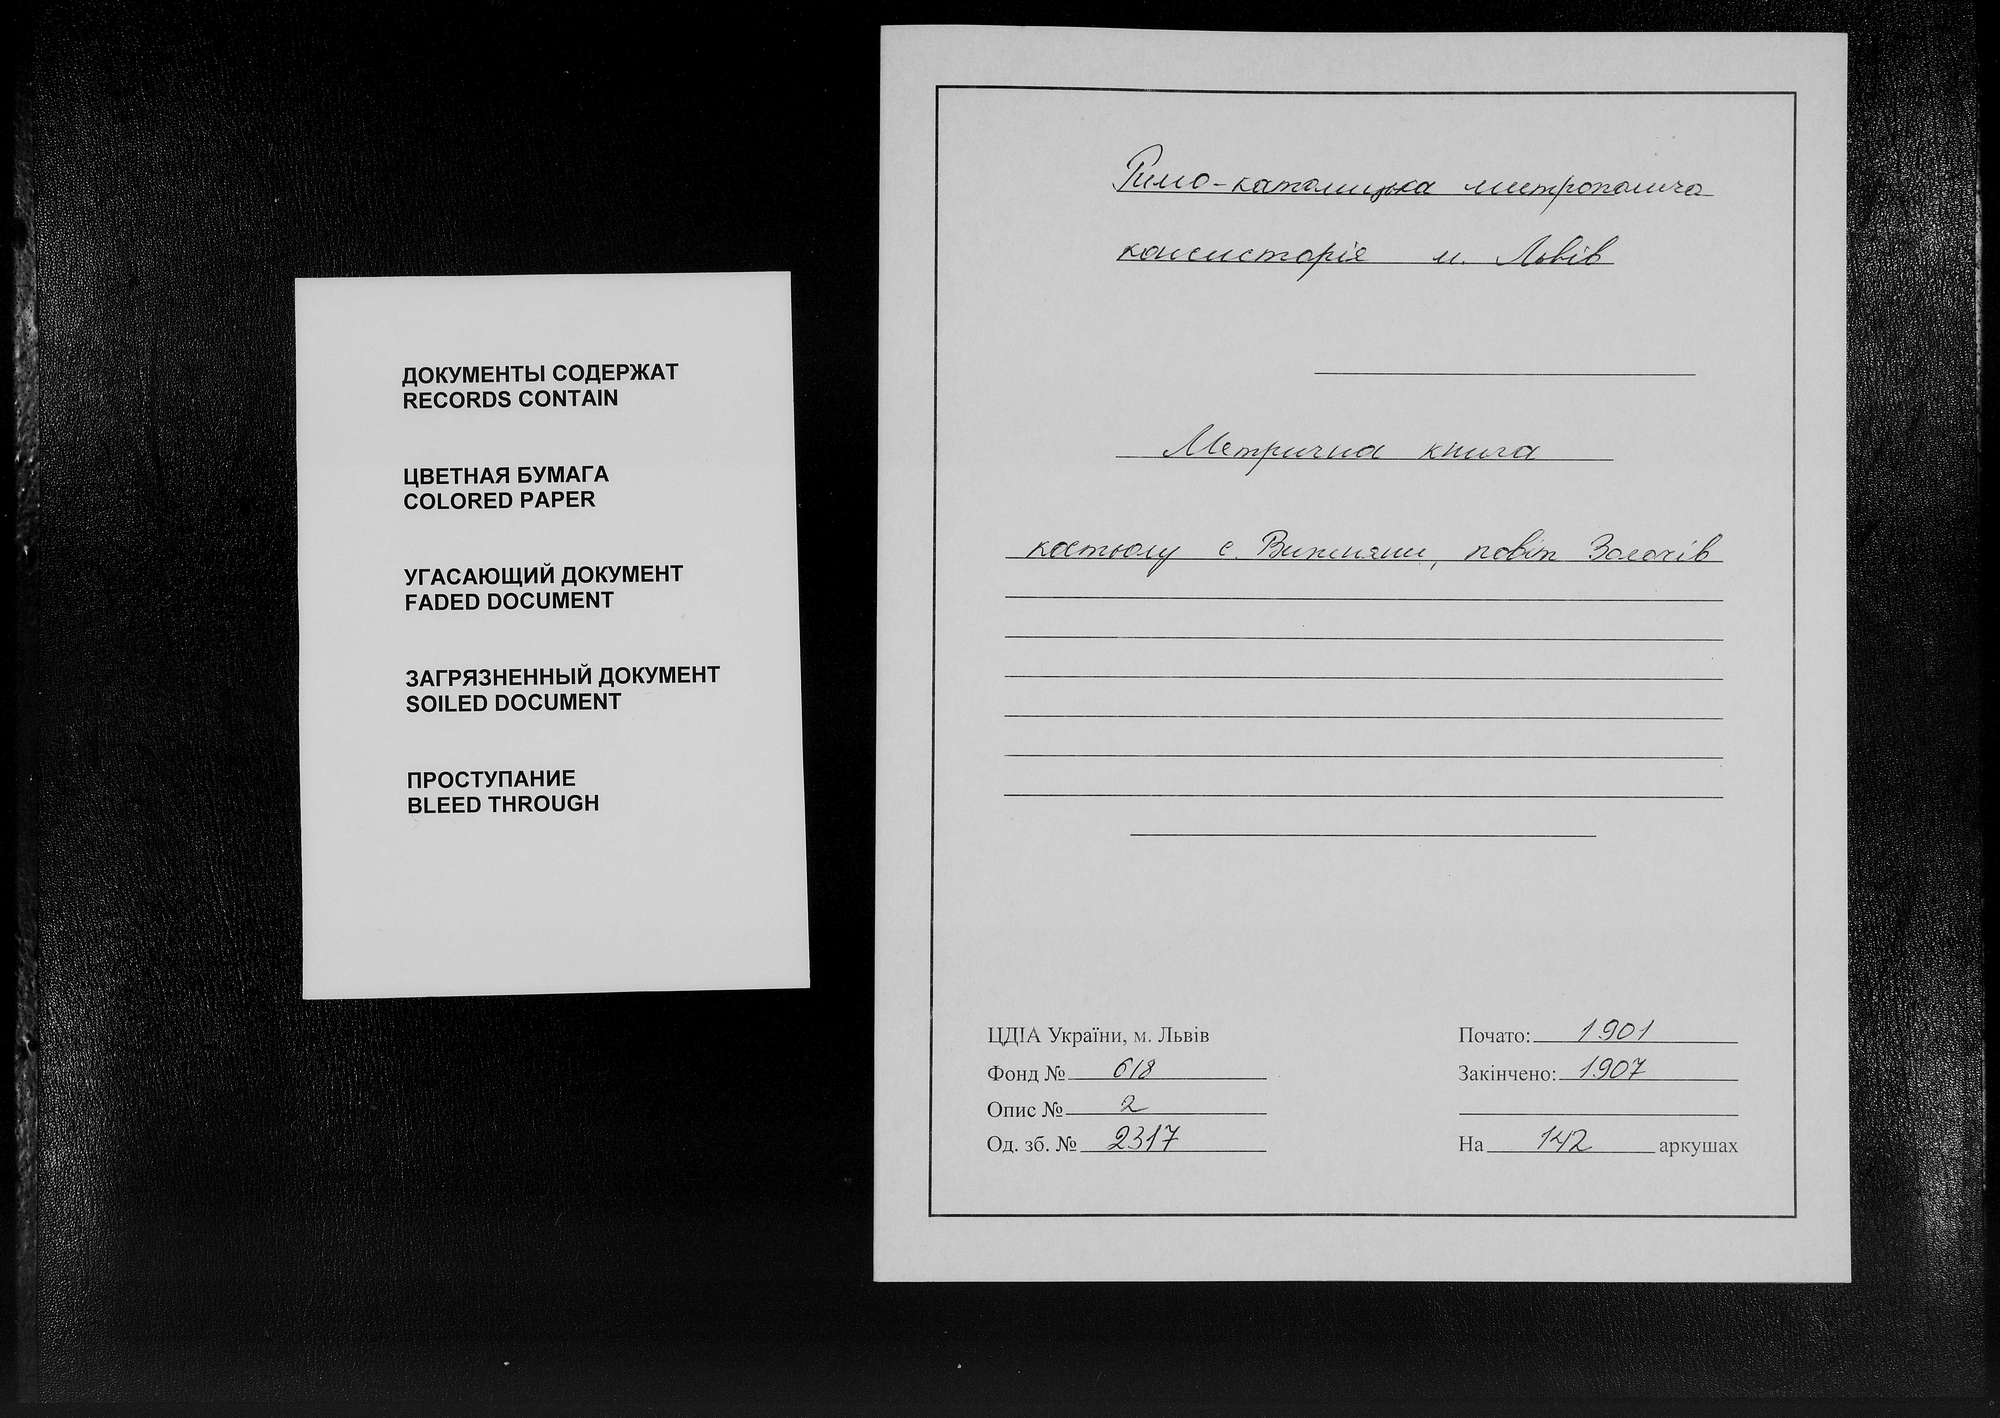 ДОКУМЕНТЫ СОДЕРЖАТ
RECORDS CONTAIN
ЦВЕТНАЯ БУМАГА
COLORED PAPER
УГАСАЮЩИЙ ДОКУМЕНТ
FADED DOCUMENT
ЗАГРЯЗНЕННЫЙ ДОКУМЕНТ
SOILED DOCUMENT
ПРОСТУПАНИЕ
BLEED THROUGH
Римо-католицька митрополича
консисторія м. Львів
Метрична книга
костьолу с. Вижняни, повіт Золочів
ЦДІА України, м. Львів
Фонд № 618
Опис № 2
Од. зб. № 2317
Почато: 1901
Закінчено: 1907
На 142 аркушах